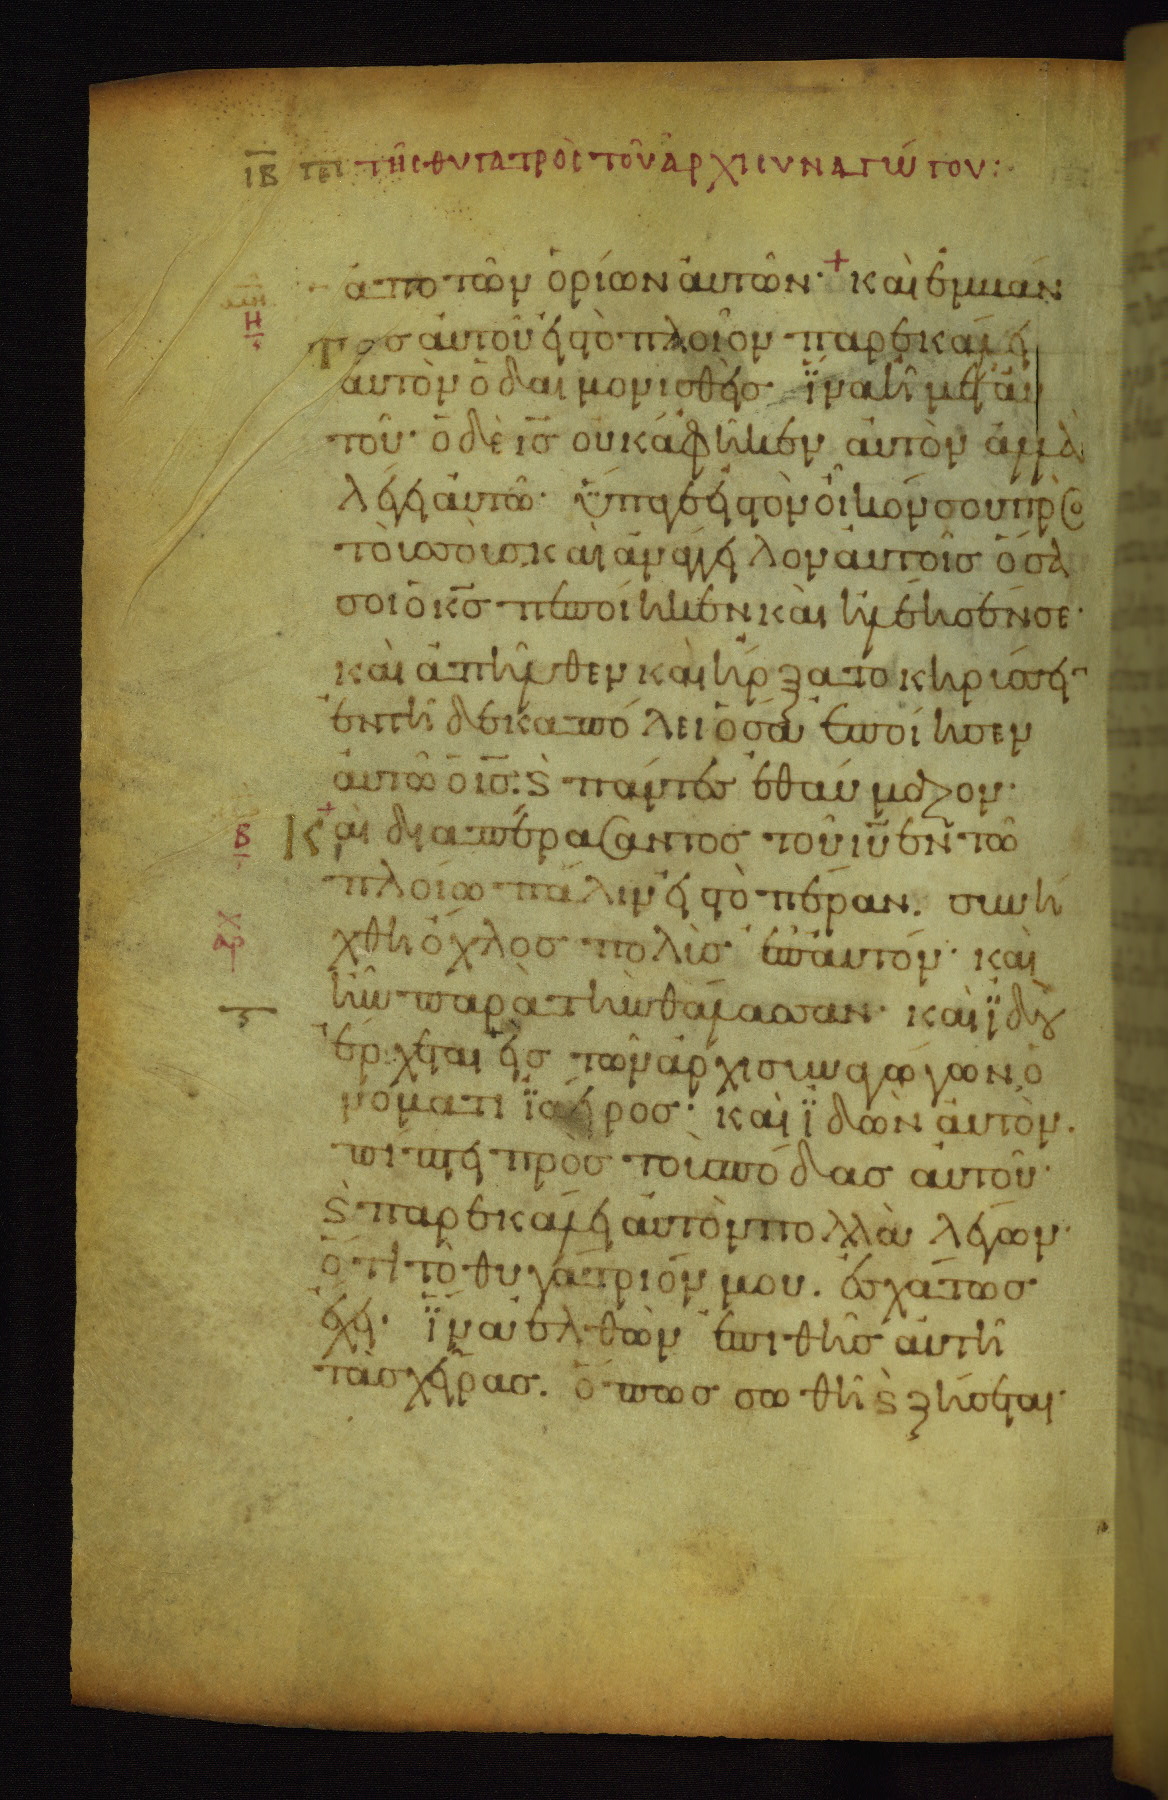 ΙΒ τει της θυγατρὸς τοῦ ἀρχισυναγώγου:
ἀπὸ τῶν ὁρίων ἀυτῶν· + καὶ ἐμβάν
τος ἀυτοῦ εἰς τὸ πλοῖον παρεκάλει
αυτὸν ὁ δαιμονισθεὶς ἵνα ῆ μετ ἀυ
τοῦ· ὁ δὲ ις ουκ ἀφῆκεν ἀυτὸν ἀλλὰ
λέγει ἀυτῶ· ὕπαγε εἰς τὸν οἶκόν σου πρὸς
τοὺς σοὺς καὶ ἀνάγγειλον ἀυτοῖς ὅσα
σοι ὁ κς πεποίηκεν καὶ ηλέησέν σε·
καὶ ἀπῆλθεν καὶ ἤρξατο κηρύσσειν
ἐν τῆ δεκαπόλει ὅσα ἐποίησεν
ἀυτῶ ὁ ις: ϗ πάντες ἐθαύμαζον·
Β Καὶ διαπεράσαντος τοῦ ιυ ἐν τῶ
πλοίω πάλιν εἰς τὸ πέραν. συνή
χθη ὄχλος πολὺς ἐπ ἀυτόν· καὶ
ἦν παρὰ τὴν θάλασσαν· καὶ ϊδοὺ
ἔρχεται εἷς τῶν ἀρχισυναγώγων ὀ
νόματι ϊάειρος· καὶ ϊδὼν ἀυτὸν.
πίπτει πρὸς τοὺς πόδας ἀυτοῦ·
ϗ παρεκάλει ἀυτὸν πολλὰ λέγων·
ὅτι τὸ θυγάτριόν μου. ἐσχάτως
ἔχει· ἵνα ἐλθὼν ἐπιθῆς ἀυτῆ
τὰς χεῖρας. ὅπως σωθῆ ϗ ζήσεται·